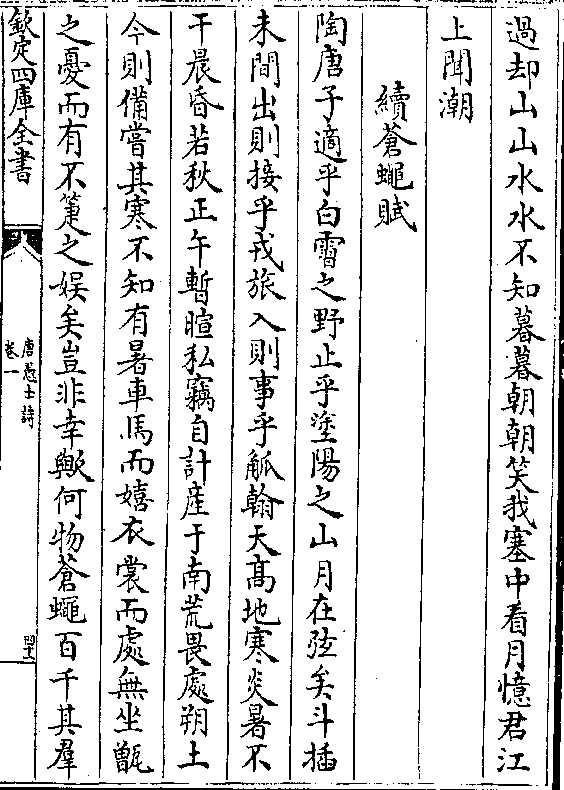 過却山山水水不知暮暮朝朝笑我塞中看月憶君江
上聞潮
續蒼蠅賦
陶唐子適乎白霫之野止乎塗陽之山月在弦矣斗插
未間出則接乎戎旅入則事乎觚翰天髙地寒炎暑不
干晨昏若秋正午暫暄私竊自計産于南荒畏處朔土
今則備嘗其寒不知有暑車馬而嬉衣裳而處無坐甑
之憂而有不箑之娱矣豈非幸歟何物蒼蠅百千其羣
欽定四庫全書
唐愚士詩
卷一